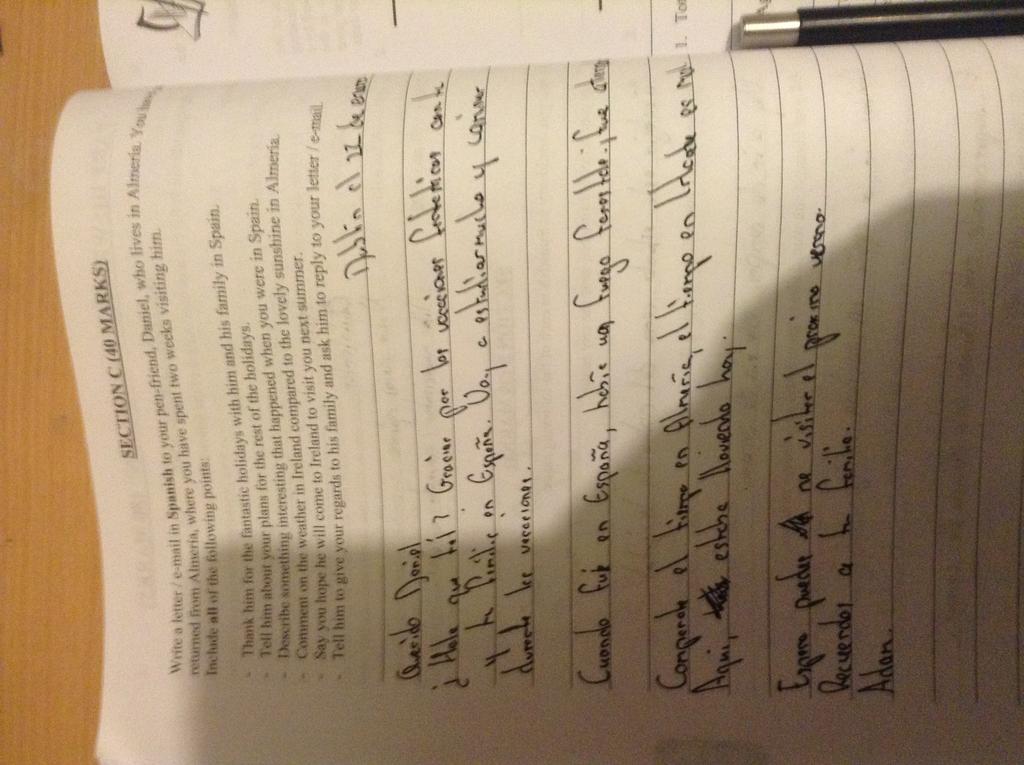 SECTION C (40 MARKS)
Write a letter / e-mail in Spanish to your pen-friend, Daniel, who lives in Almería. You have
returned from Almería, where you have spent two weeks visiting him.
Include all of the following points:
- Thank him for the fantastic holidays with him and his family in Spain.
- Tell him about your plans for the rest of the holidays.
- Describe something interesting that happened when you were in Spain.
- Comment on the weather in Ireland compared to the lovely sunshine in Almería.
- Say you hope he will come to Ireland to visit you next summer.
- Tell him to give your regards to his family and ask him to reply to your letter / e-mail.
Dublin el 22 de enero
Querido Daniel
¿Hola que tal? Gracias por las vacciones fantasticas con te
y tu familia en España. Voy a estudiar mucho y
durante las vacaciones.
Cuando fui en España, habia un fuego fue
Comparado el tiempo en Almería, el tiempo en Irlanda es mal.
Aqui, estaba lloviendo hoy.
Espero puedes me visitar el proximo verano.
Recuerdos a tu familia.
Adan.
1. To